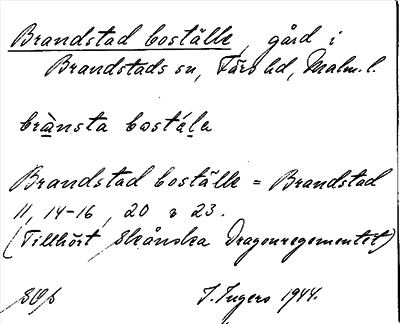 Brandstad boställe, gård i
Brandstads sn, Färs hd, Malm. l.
brànsta bostä́le
Brandstad boställe = Brandstad
11, 14-16, 20 o 23.
(Tillhört Skånska Dragonregementet)
I. Ingers 1944.